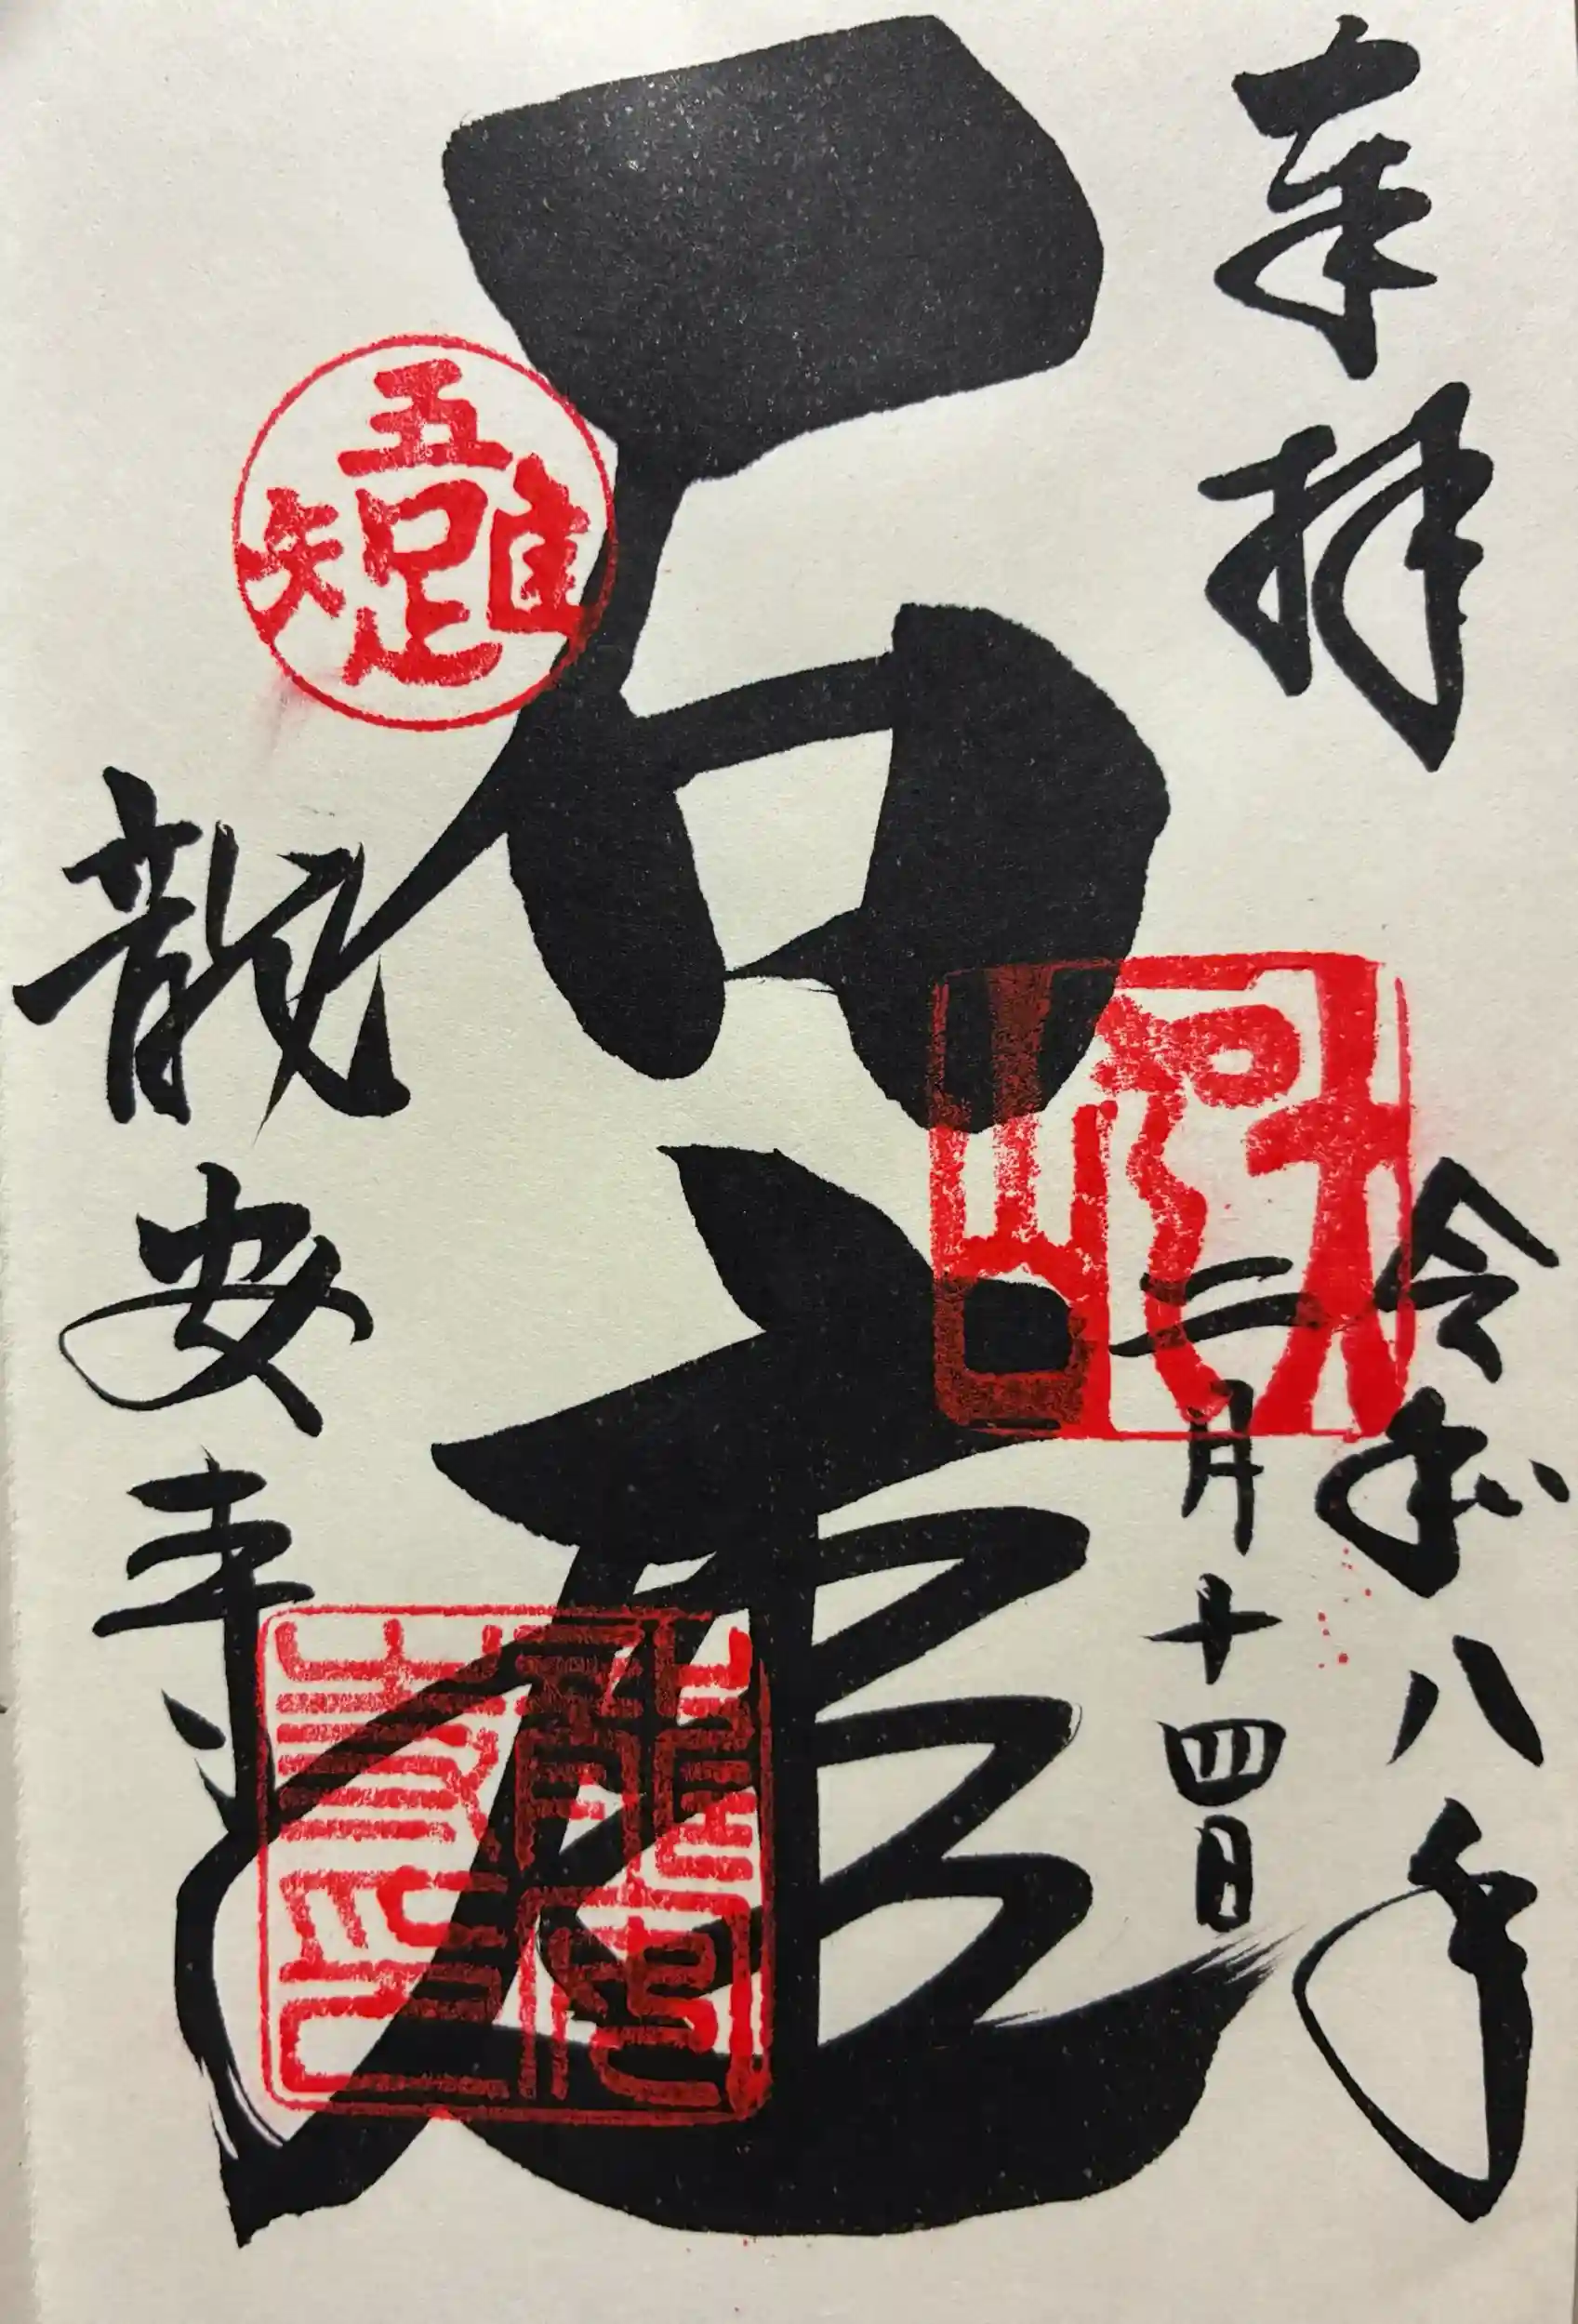 奉拝
令和八年
二月十四日
石庭
龍安寺
吾唯足知